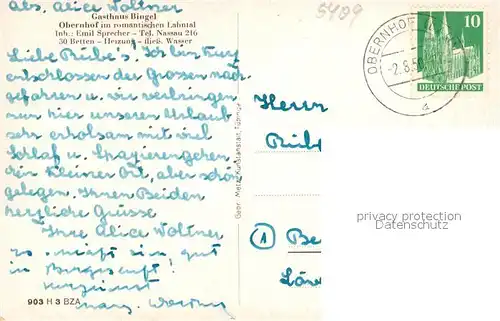 Abs. Alice Woltner
Gasthaus Bingel
Obernhof im romantischen Lahntal
Inh: Emil Sprecher - Tel. Nassau 216
30 Betten - Heizung - fließ. Wasser
Liebe Rübe's! Ich bin kurz
entschlossen der Grossen nach
gefahren u. wir verbringen
nun hier unseren Urlaub
sehr erholsam mit viel
Schlaf u. Spazierengehen
Ein kleiner Ort, aber schön
gelegen. Ihnen Beiden
herzliche Grüsse
Ihre Alice Woltner
gut
in
903 H 3 BZA
Gebr. Metz, Kunstanstalt, Tübingen
5409
OBERNHOF
-2.8.50
a
10
DEUTSCHE POST
Herrn
Rübe
1
Be
privacy protection